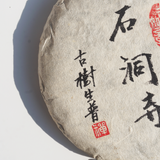 石洞寺
古樹生普